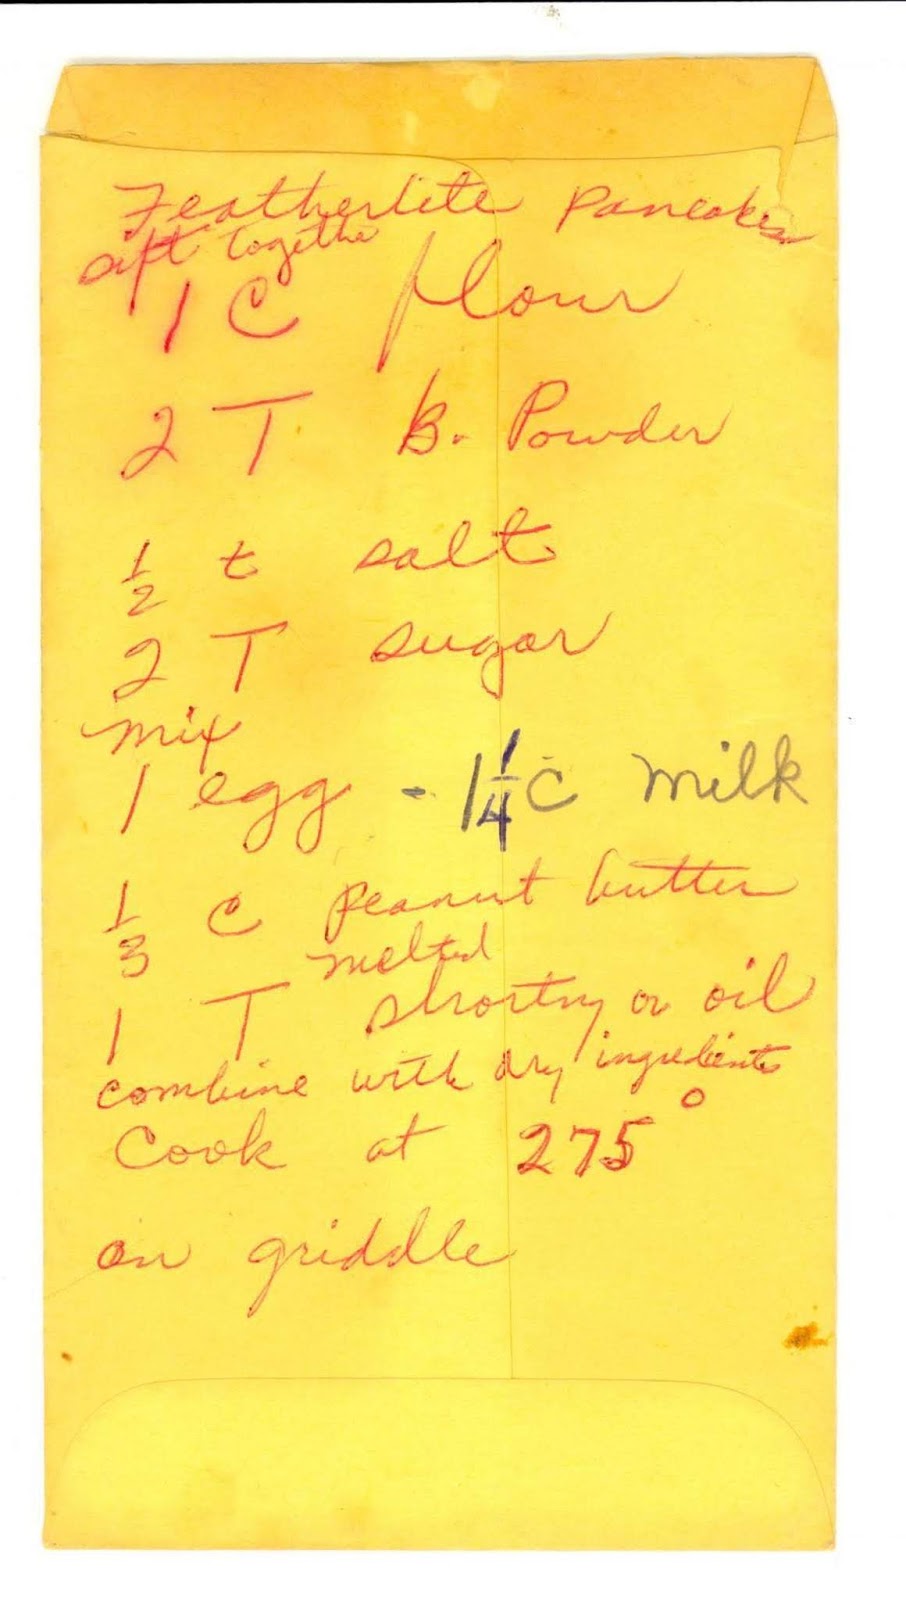 Featherlite Pancakes
sift together
1 C flour
2 T B. Powder
1/2 t salt
2 T sugar
mix
1 egg - 1 1/4 C Milk
1/3 C peanut butter
melted
1 T shortng or oil
combine with dry ingredients
Cook at 275°
on griddle